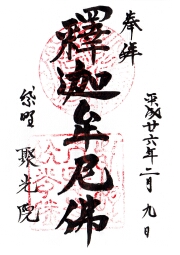 奉拝
平成廿六年二月九日
釋迦牟尼佛
聚光院